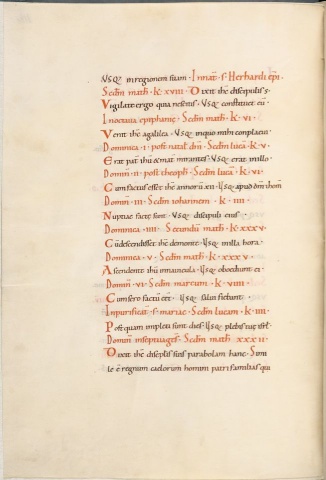 Usq; in regionem suam. In nat̄. s̄. Herhardi ep̄i.
Scd̄m math̄. k. xviii. Dixit ih̄c discipulis s.
Vigilate ergo quia nescitis. Usq; constituet eū.
In octava epiphanię. Scd̄m math̄. k. vi.
Venit ih̄c a galilea. Usq; in quo mihi complacui.
Dominica. i. post natal̄ dn̄i. Scd̄m lucā. k. v.
Erat pat̄ ih̄u & mat̄ mirantes. Usq; erat in illo.
Dominic̄. ii. post theoph̄. Scd̄m lucā. k. vi.
Cum factus esset ih̄c annorū xii. Usq; apud dm̄ & hom̄
Domin̄. iii. Scd̄m iohannem. k. iiii.
Nuptiae factę sunt. Usq; discipuli eius.
Dominica. iiii. Secundū math̄. k. xxxv.
Cū descendisset ih̄c de monte. Usq; in illa hora.
Dominica. v. Scd̄m math̄. k. xxxv.
Ascendente ih̄u in navicula. Usq; oboediunt ei.
Domin̄. vi. Scd̄m marcum. k. viiii.
Cum sero factū eēt. Usq; salvi fiebant.
In purificat̄. s̄. mariae. Scd̄m lucam. k. iiii.
Postquam impleti sunt dies. Usq; plebis tuę isrl̄.
Domin̄ in septuages̄. Scd̄m math̄. xxxii.
Dixit ih̄c discipl̄is suis parabolam hanc. Simi
le ē regnum caelorum homini patri familias qui